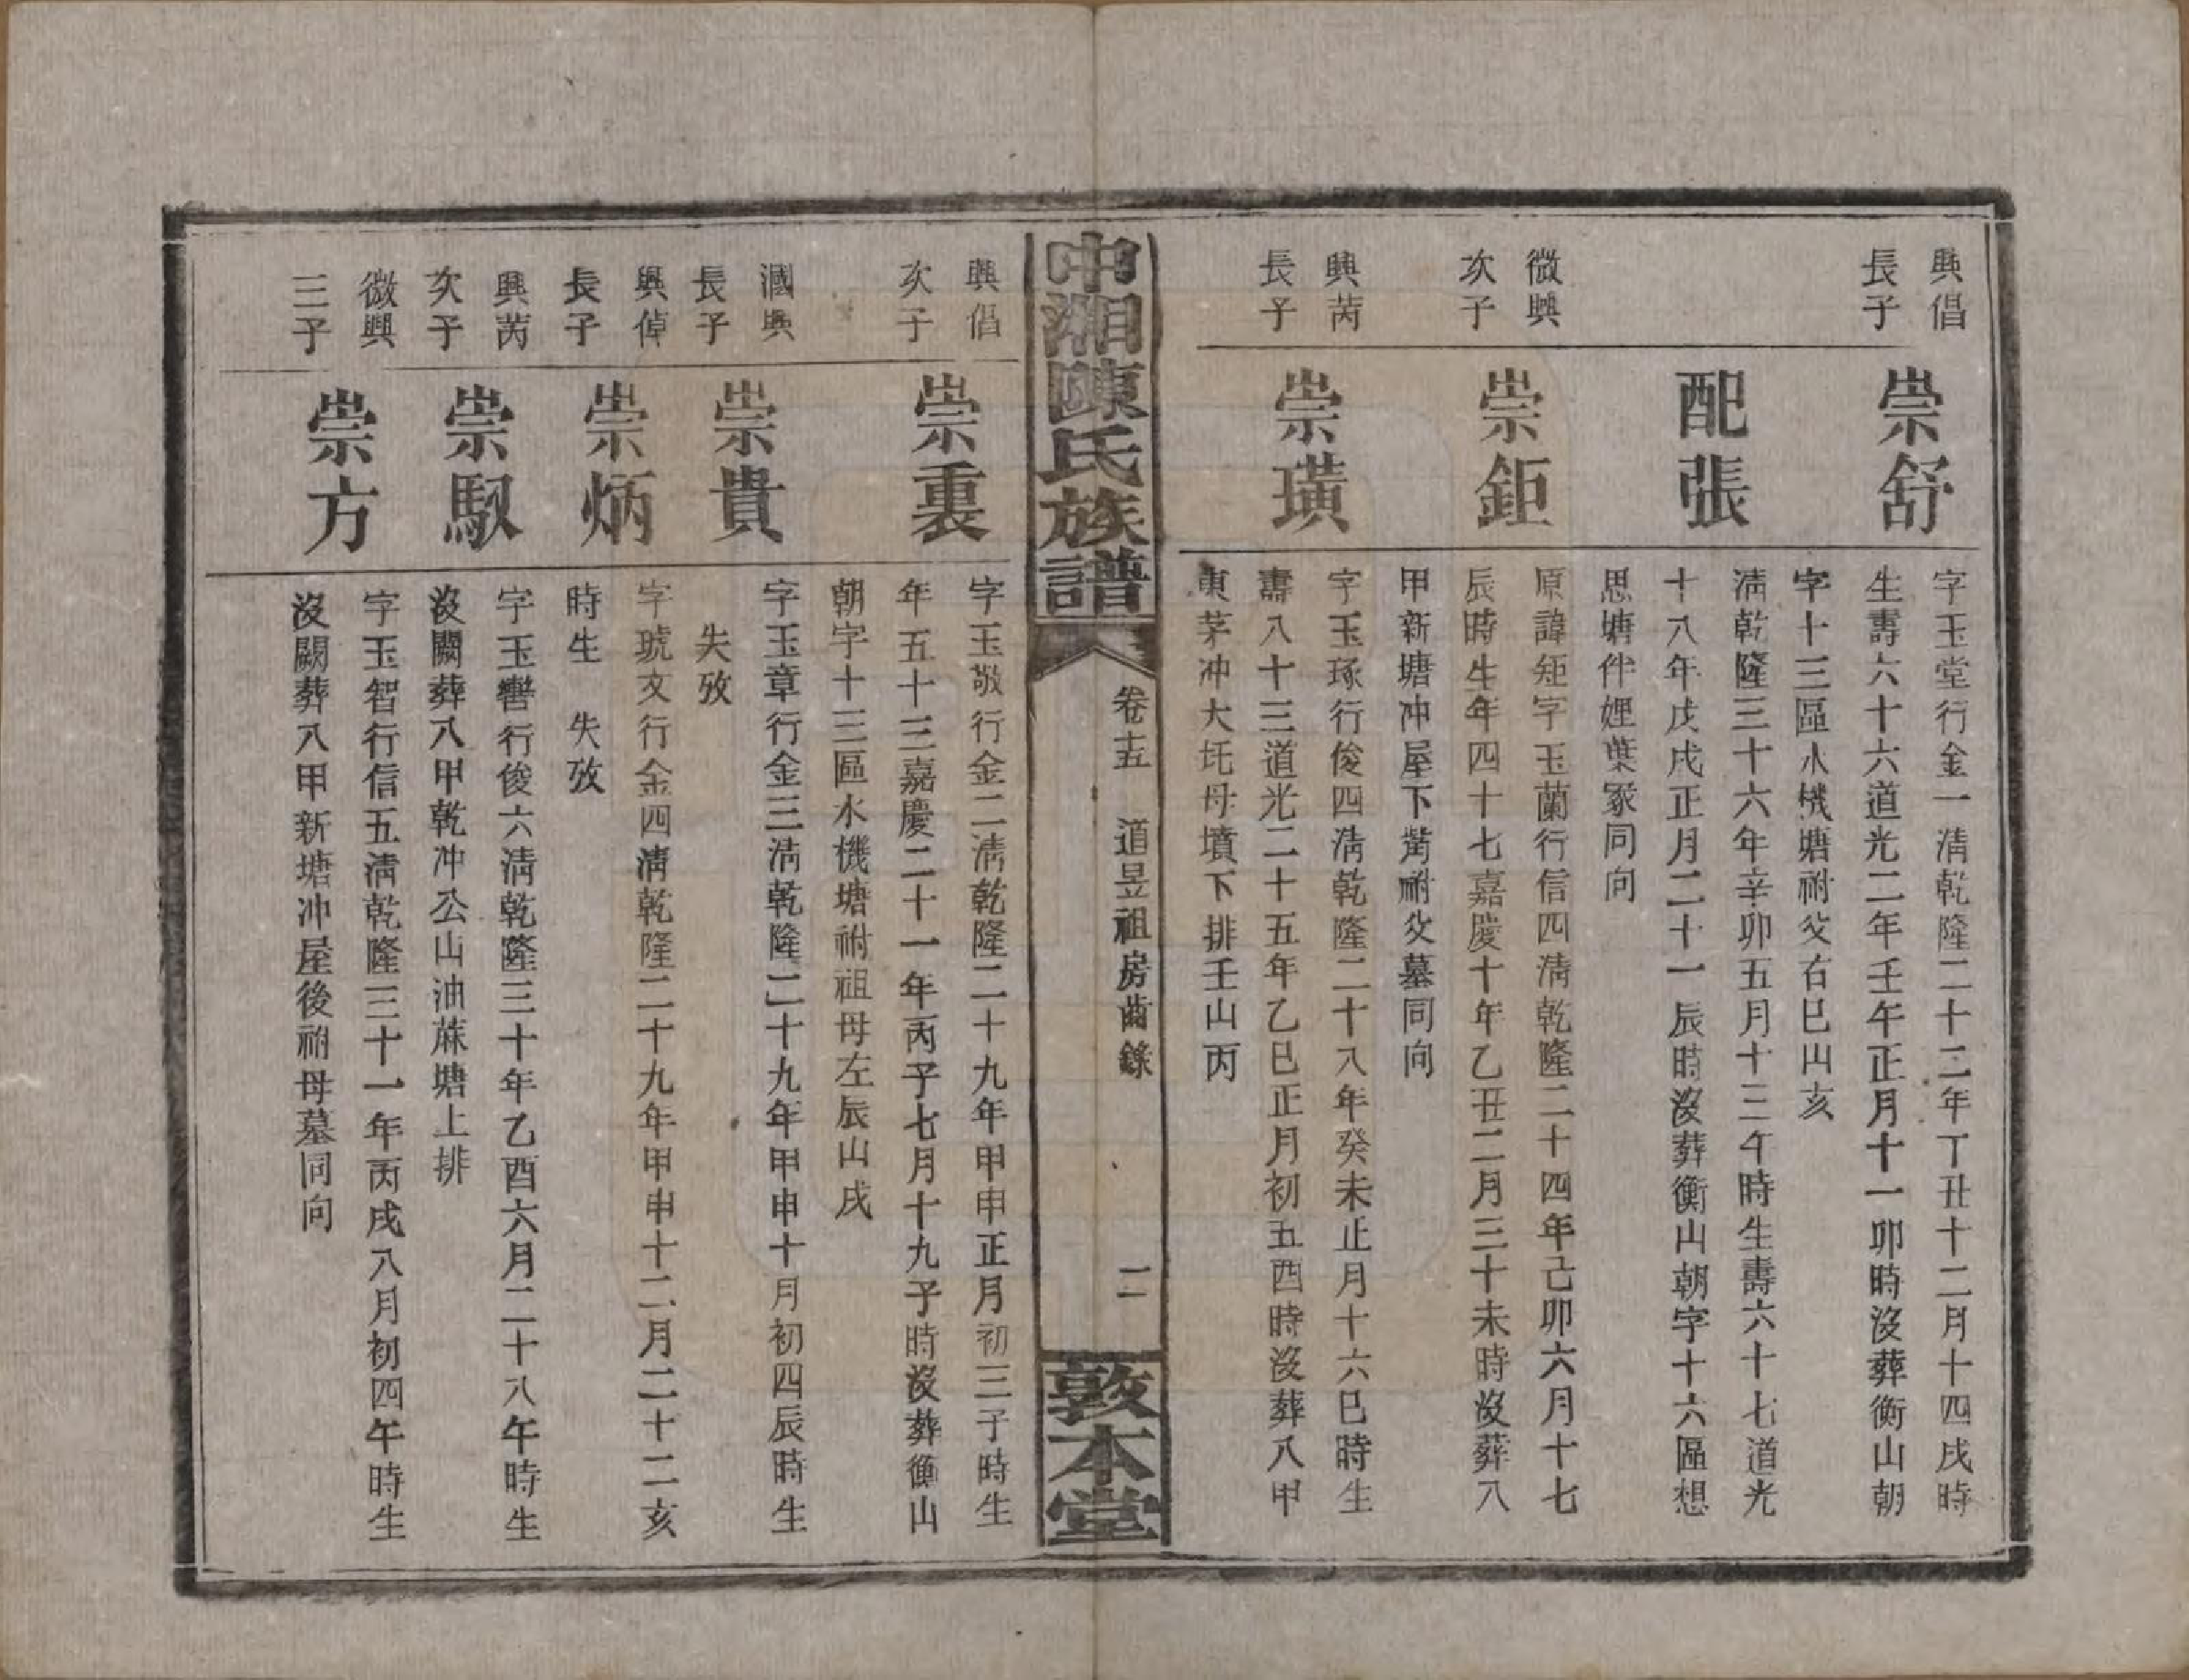 興倡
長子
崇舒
字玉堂行金一淸乾隆二十二年丁丑十二月十四戌時
生壽六十六道光二年壬午正月十一卯時沒葬衡山朝
字十三區水機塘祔父右巳山亥
配張
淸乾隆三十六年辛卯五月十三午時生壽六十七道光
十八年戊戌正月二十一辰時沒葬衡山朝字十六區想
思塘伴娌葉冢同向
微興
次子
崇鉅
原諱矩字玉蘭行信四淸乾隆二十四年己卯六月十七
辰時生年四十七嘉慶十年乙丑二月三十未時沒葬八
甲新塘冲屋下嵜祔父墓同向
興苪
長子
崇璜
字玉琢行俊四淸乾隆二十八年癸未正月十六巳時生
壽八十三道光二十五年乙巳正月初五酉時沒葬八甲
東茅冲大坵母墳下排壬山丙
中湘陳氏族譜
卷十五 道昱祖房齒錄
二
敦本堂
興倡
次子
崇裏
字玉敬行金二淸乾隆二十九年甲申正月初三子時生
年五十三嘉慶二十一年丙子七月十九子時沒葬衡山
朝字十三區水機塘祔祖母左辰山戌
漍興
長子
崇貴
字玉章行金三淸乾隆二十九年甲申十月初四辰時生
失攷
興倬
長子
崇炳
字琥文行金四淸乾隆二十九年甲申十二月二十二亥
時生 失攷
興苪
次子
崇馭
字玉轡行俊六淸乾隆三十年乙酉六月二十八午時生
沒闕葬八甲乾冲公山油蔴塘上排
微興
三子
崇方
字玉智行信五淸乾隆三十一年丙戌八月初四午時生
沒闕葬八甲新塘冲屋後祔母墓同向